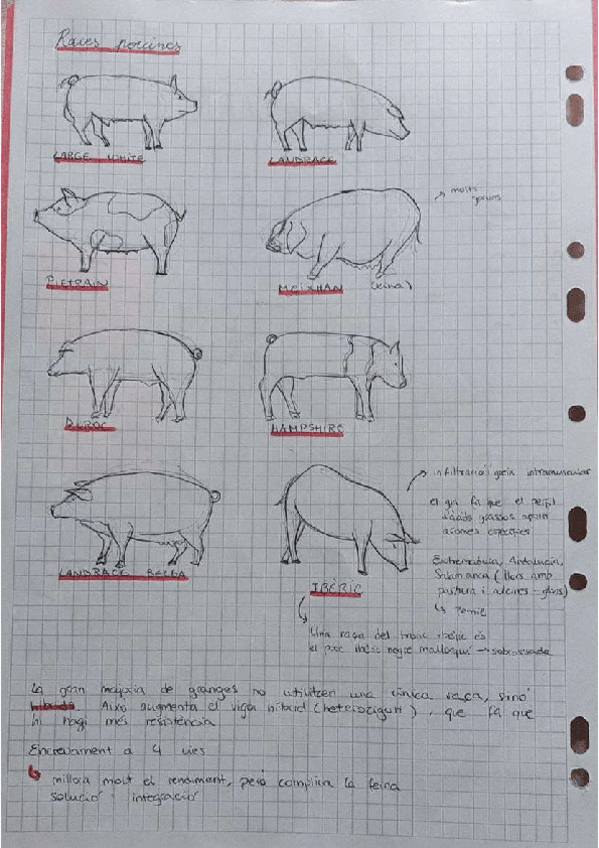 Races porcines
LARGE WHITE
LANDRACE
PIETRAIN
→ molts
MEIXHAN (xina)
DUROC
HAMPSHIRE
LANDRACE BELGA
IBÈRIC
→ infiltració greix intramuscular
el qui fa que el perfil
d'àcids grassos aporti
aromes específiques
Extremadura, Andalucía,
Salamanca (llocs amb
pastura i alzines - glans)
↳ Pernil
Una raça del tronc ibèric és
el porc ibèric negre mallorquí → sobrassada
La gran majoria de granges no utilitzen una única raça, sinó
híbrids. Això augmenta el vigor híbrid (heterozigot), que fa que
hi hagi més resistència
Encreuament a 4 vies
↳ millora molt el rendiment, però complica la feina
solució: integració